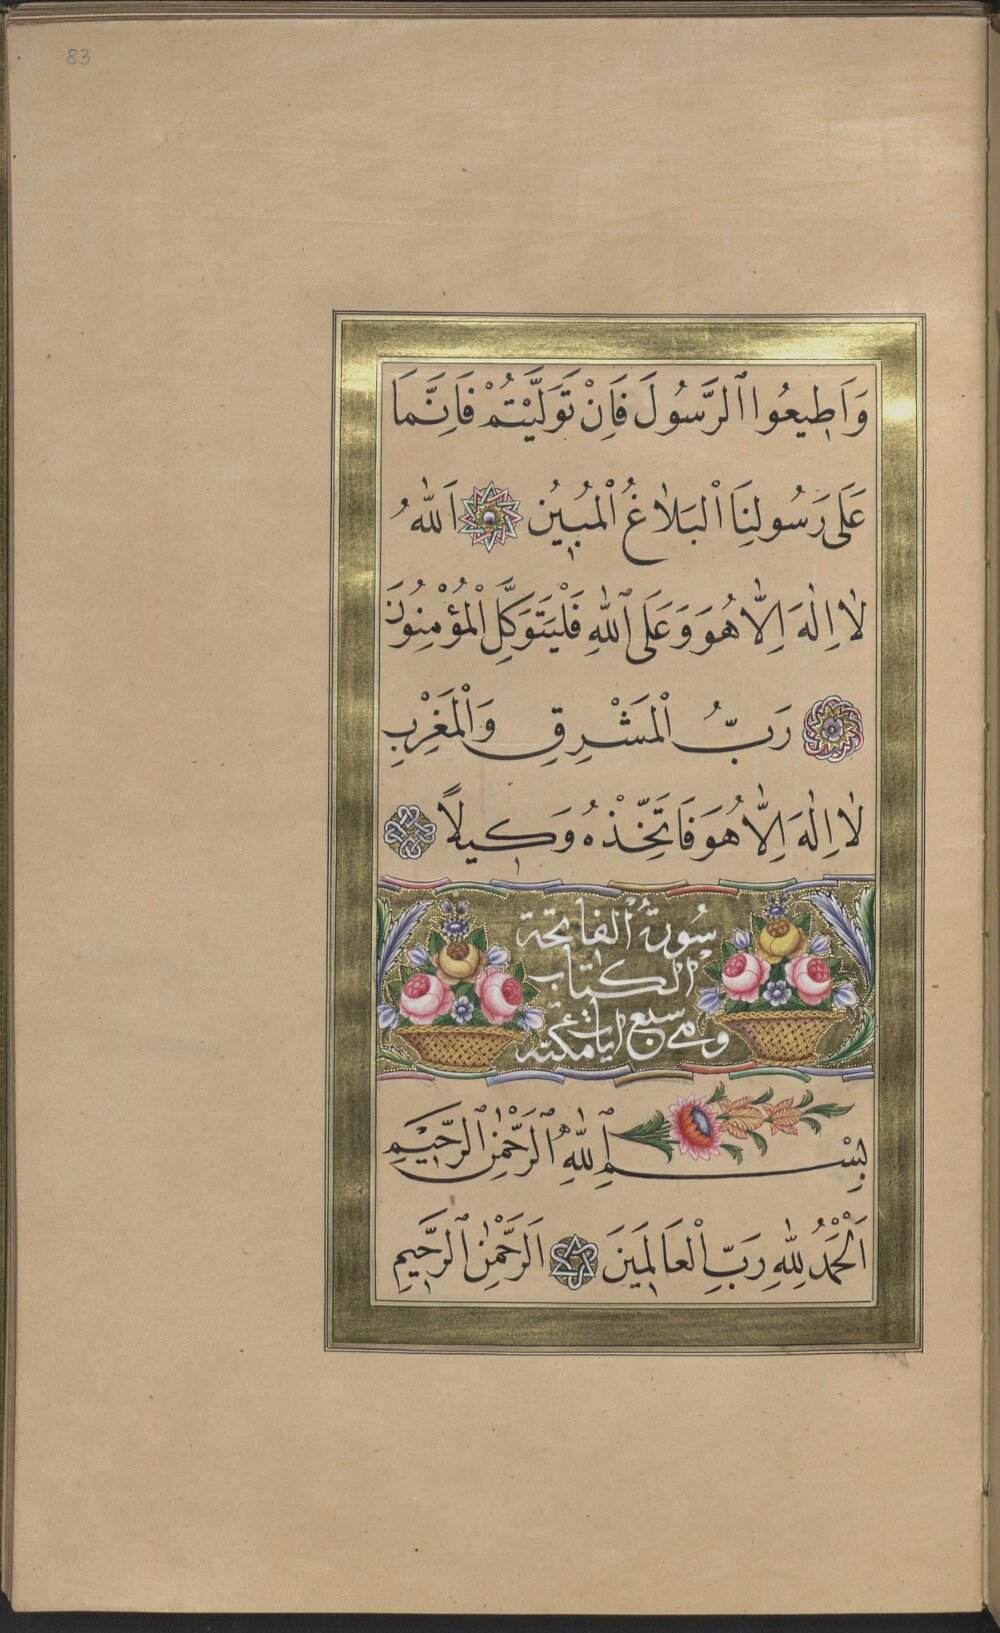 83
وَاَطِيعُوا ٱلرَّسُولَ فَاِنْ تَوَلَّيْتُمْ فَاِنَّمَا
عَلَى رَسُولِنَا ٱلْبَلَاغُ ٱلْمُبِيُن اَللّٰهُ
لَا اِلٰهَ اِلَّا هُوَ وَعَلَى ٱللّٰهِ فَلْيَتَوَكَّلِ ٱلْمُؤْمِنُونَ
رَبُّ ٱلْمَشْرِقِ وَٱلْمَغْرِبِ
لَا اِلٰهَ اِلَّا هُوَ فَاتَّخِذْهُ وَكِيلاً
سُورَةُ ٱلْفَاتِحَة
الكتاب
وهي سبع ايات مكية
بِسْمِ ٱللّٰهِ ٱلرَّحْمٰنِ ٱلرَّحِيْمِ
اَلْحَمْدُ لِلّٰهِ رَبِّ ٱلْعَالَمِينَ اَلرَّحْمٰنِ ٱلرَّحِيمِ